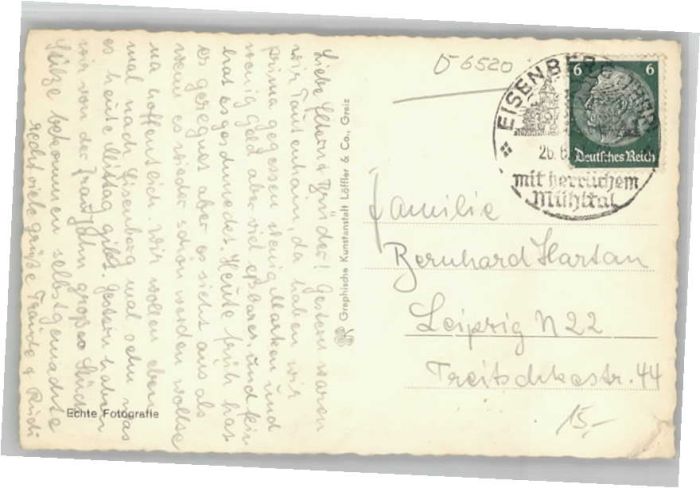 Liebe Eltern u Brüder! Gestern waren
wir Tautenhain, da haben wir
prima gegessen wenig Marken und
wenig Geld aber viel eßbares, und fein
hat es geschmeckt. Heute früh hat
es geregnet aber es sieht aus als
wenn es wieder schön werden wollte
na hoffentlich wir wollen eben
mal nach Eisenberg mal sehn was
es heute Mittag gibt. Gestern haben
wir von der Frau Jahn große Stück
bekommen selbstgemachte
recht viele Grüße Traude u Rudi
Echte Fotografie
Graphische Kunstanstalt Löffler & Co., Greiz
D 6520
EISENBERG
26.
mit herrlichem
Mühltal
6 6
Deutsches Reich
Familie
Bernhard Hartan
Leipzig N 22
Treitschkestr. 44
15,-